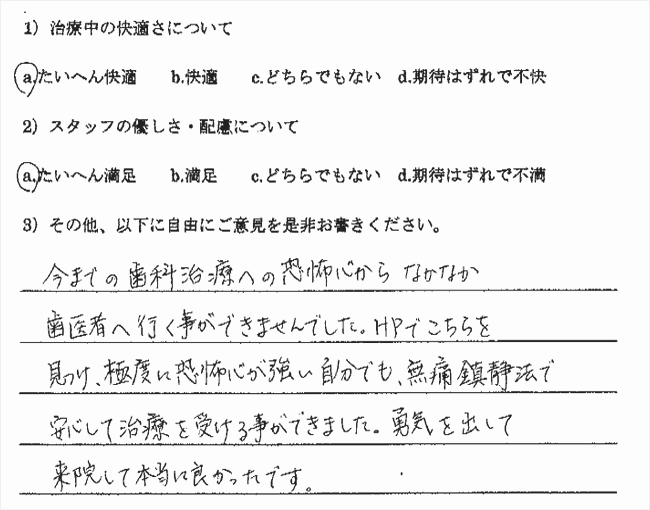 1）治療中の快適さについて
a.たいへん快適 b.快適 c.どちらでもない d.期待はずれで不快
2）スタッフの優しさ・配慮について
a.たいへん満足 b.満足 c.どちらでもない d.期待はずれで不満
3）その他、以下に自由にご意見を是非お書きください。
今までの歯科治療への恐怖心から なかなか
歯医者へ行く事ができませんでした。HPでこちらを
見つけ、極度に恐怖心が強い自分でも、無痛鎮静法で
安心して治療を受ける事ができました。勇気を出して
来院して本当に良かったです。